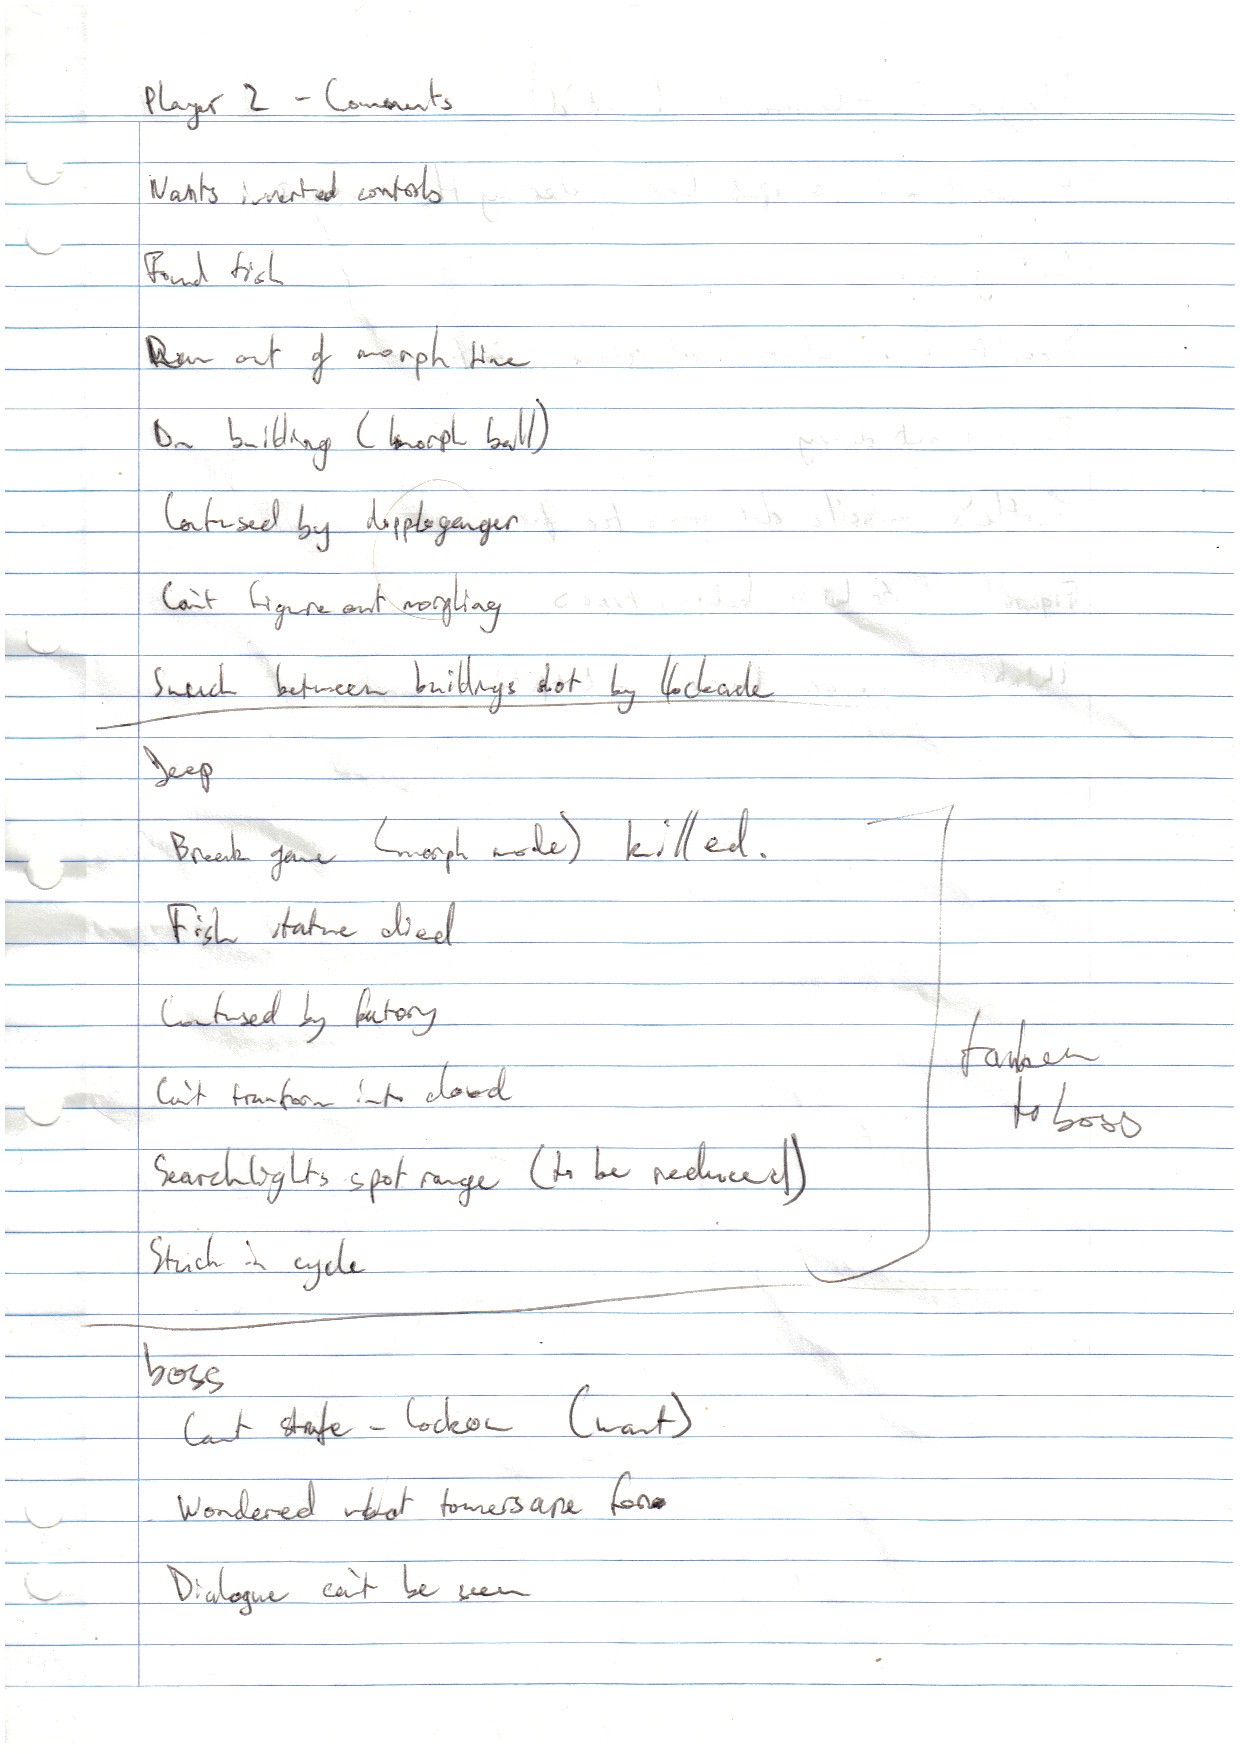 Player 2 - Comments
Wants inverted controls
Found fish
Run out of morph time
On building (morph ball)
Confused by doppleganger
Can't figure out morphing
between buildings shot by blockade
Jeep
Break game (morph mode) killed.
Fish statue died
Confused by factory
Can't transform into cloud
Searchlights spot range (to be reduced)
Stuck in cycle
taken
to boss
boss
Cant strafe - lockon (want)
Wondered what towers are for
Dialogue can't be seen